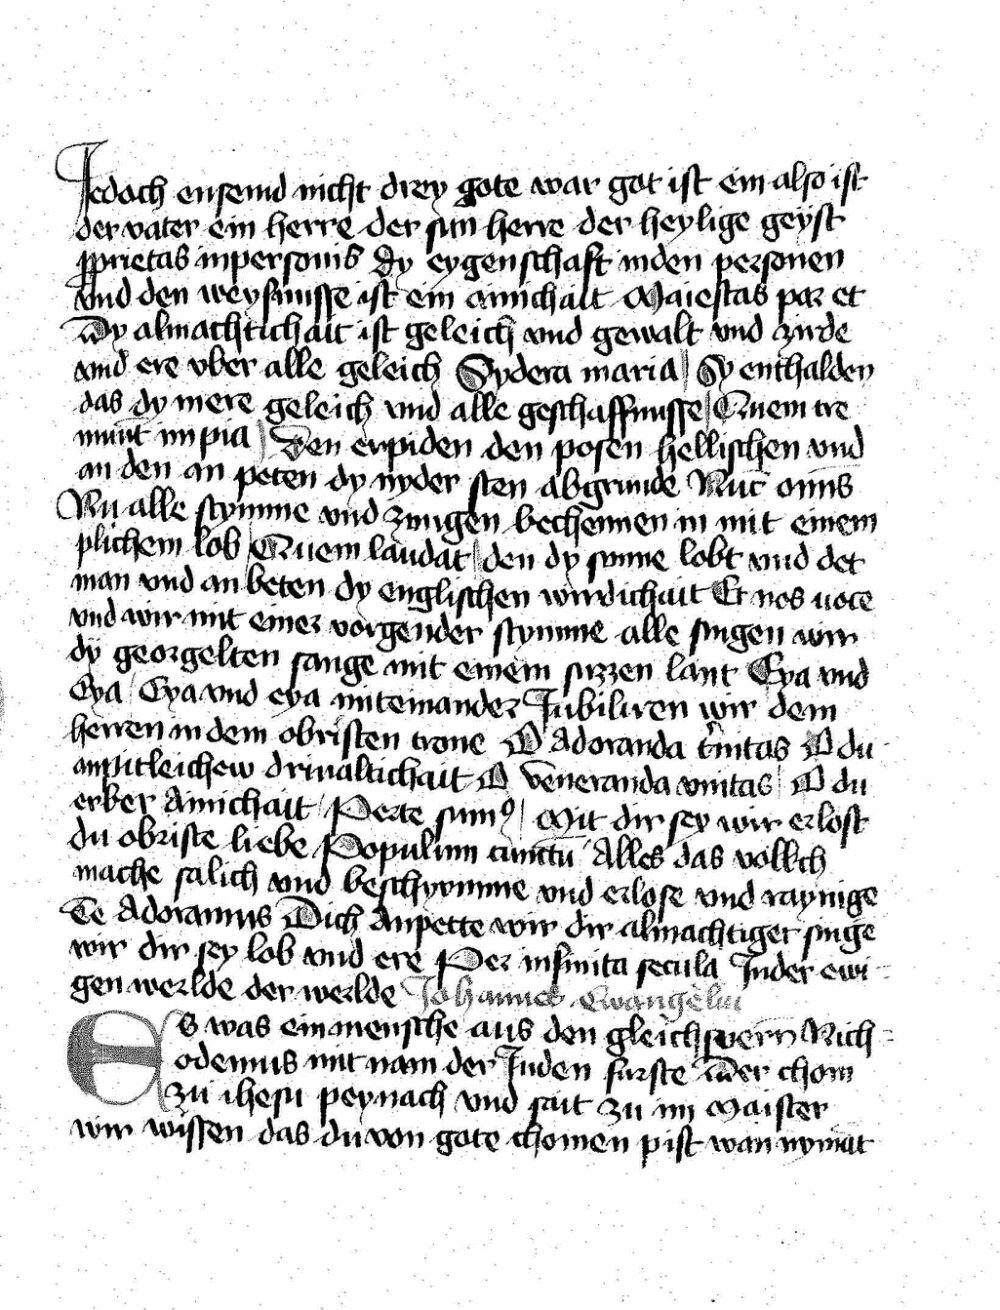 Jedoch ensemd nicht drey gote war got ist ein also ist
der vater ein herre der sun herre der heylige geyst
pprietas inpersonis Dy eygenschaft inden personen
vnd den weysnusse ist ein ainichait Maiestas par et
Dy almachtichait ist geleich vnd gewalt vnd zirde
vnd ere vber alle geleich Sydera maria Sy enthalden
das dy mere geleich vnd alle geschaffnusse Quem tre
munt impia Den erpiden den posen hellischen vnd
an den an peten dy nyder sten abgrunde Nuc omis
Nu alle stymme vnd zungen bechennen in mit einem
plichem lob Quem laudat den dy sunne lobt vnd det
man vnd an beten dy englischen wirdichait Et nos uoce
vnd wir mit einer vorgender stymme alle singen wir
dy georgelten sange mit einem suzzen laut Eya vnd
Eya Eya vnd eya miteinander Jubiliren wir dem
herren in dem obristen trone O Adoranda trinitas O du
anpitleichew driualtichait O veneranda vnitas O du
erber Ainichait Perte sum9 Mit dir sey wir erlost
du obriste liebe Populum cunctu Alles das vollch
mache salich vnd beschyrmme vnd erlose vnd raynige
Te Adoramus Dich Anpette wir dir almachtiger singe
wir dir sey lob vnd ere Per infinita secula Inder ewi
gen werlde der werlde Johannes Ewangeliu
Es was ein mensche aus den gleichsnern Nich
odemus mit nam der Juden furste der chom
zu ihesu peynach vnd sait zu im Maister
wir wissen das du von gote chomen pist wan nymāt